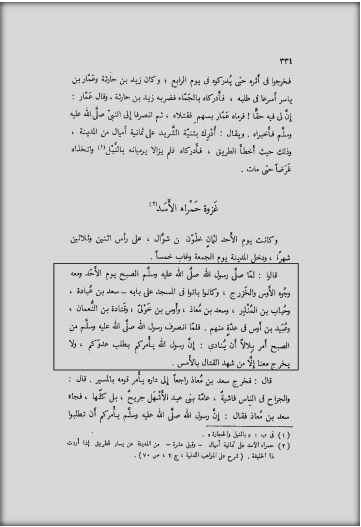 ٣٣٤
فخرجوا فى أثره حتى يُدركوه فى يوم الرابع ؛ وكان زيد بن حارثة وعمّار بن
ياسر أسرعا فى طلبه ، فأدركاه بالجَمّاء فضربه زيد بن حارثة ، وقال عمّار :
إنّ لى فيه حقًّا ! فرماه عمّار بسهمٍ فقتلاه ، ثم انصرفا إلى النبىّ صلّى الله عليه
وسلّم فأخبراه . ويقال : أُدْرِكَ بثنيّة الشَّريد على ثمانية أميال من المدينة ،
وذلك حيث أخطأ الطريق ، فأدركاه فلم يزالا يرميانه بالنَّبْل (١) واتخذاه
غَرَضاً حتى مات .
غَزوة حَمْراء الأَسَد (٢)
وكانت يوم الأحد لثمانٍ خَلَوْن من شوّال ، على رأس اثنين وثلاثين
شهرًا ، ودخل المدينة يوم الجمعة وغاب خمساً .
قالوا : لمّا صلّى رسول الله صلّى الله عليه وسلّم الصبح يوم الأحد ومعه
وجوه الأوس والخزرج ، وكانوا باتوا فى المسجد على بابه – سعد بن عُبادة ،
وحُباب بن المُنْذِر ، وسعد بن مُعاذ ، وأوس بن خَوْلىّ ، وقَتادة بن النُّعمان ،
وعُبَيد بن أوس فى عدّةٍ منهم . فلمّا انصرف رسول الله صلّى الله عليه وسلّم من
الصبح أمر بلالاً أن يُنادى : إنّ رسول الله يأمركم بطلب عدوّكم ، ولا
يخرج معنا إلّا من شهد القتال بالأمس .
قال : فخرج سعد بن مُعاذ راجعاً إلى داره يأمر قومه بالمسير . قال :
والجراح فى الناس فاشيةٌ ، عامّة بنى عبد الأشهل جريحٌ ، بل كلّها ، فجاء
سعد بن مُعاذ فقال : إنّ رسول الله صلّى الله عليه وسلّم يأمركم أن تطلبوا
(١) فى ب : « بالنبل والحجارة » .
(٢) حمراء الأسد على ثمانية أميال – وقيل عشرة – من المدينة عن يسار الطريق إذا أردت
ذا الحليفة . (شرح على المواهب اللدنية ، ج ٢ ، ص ٧٠) .